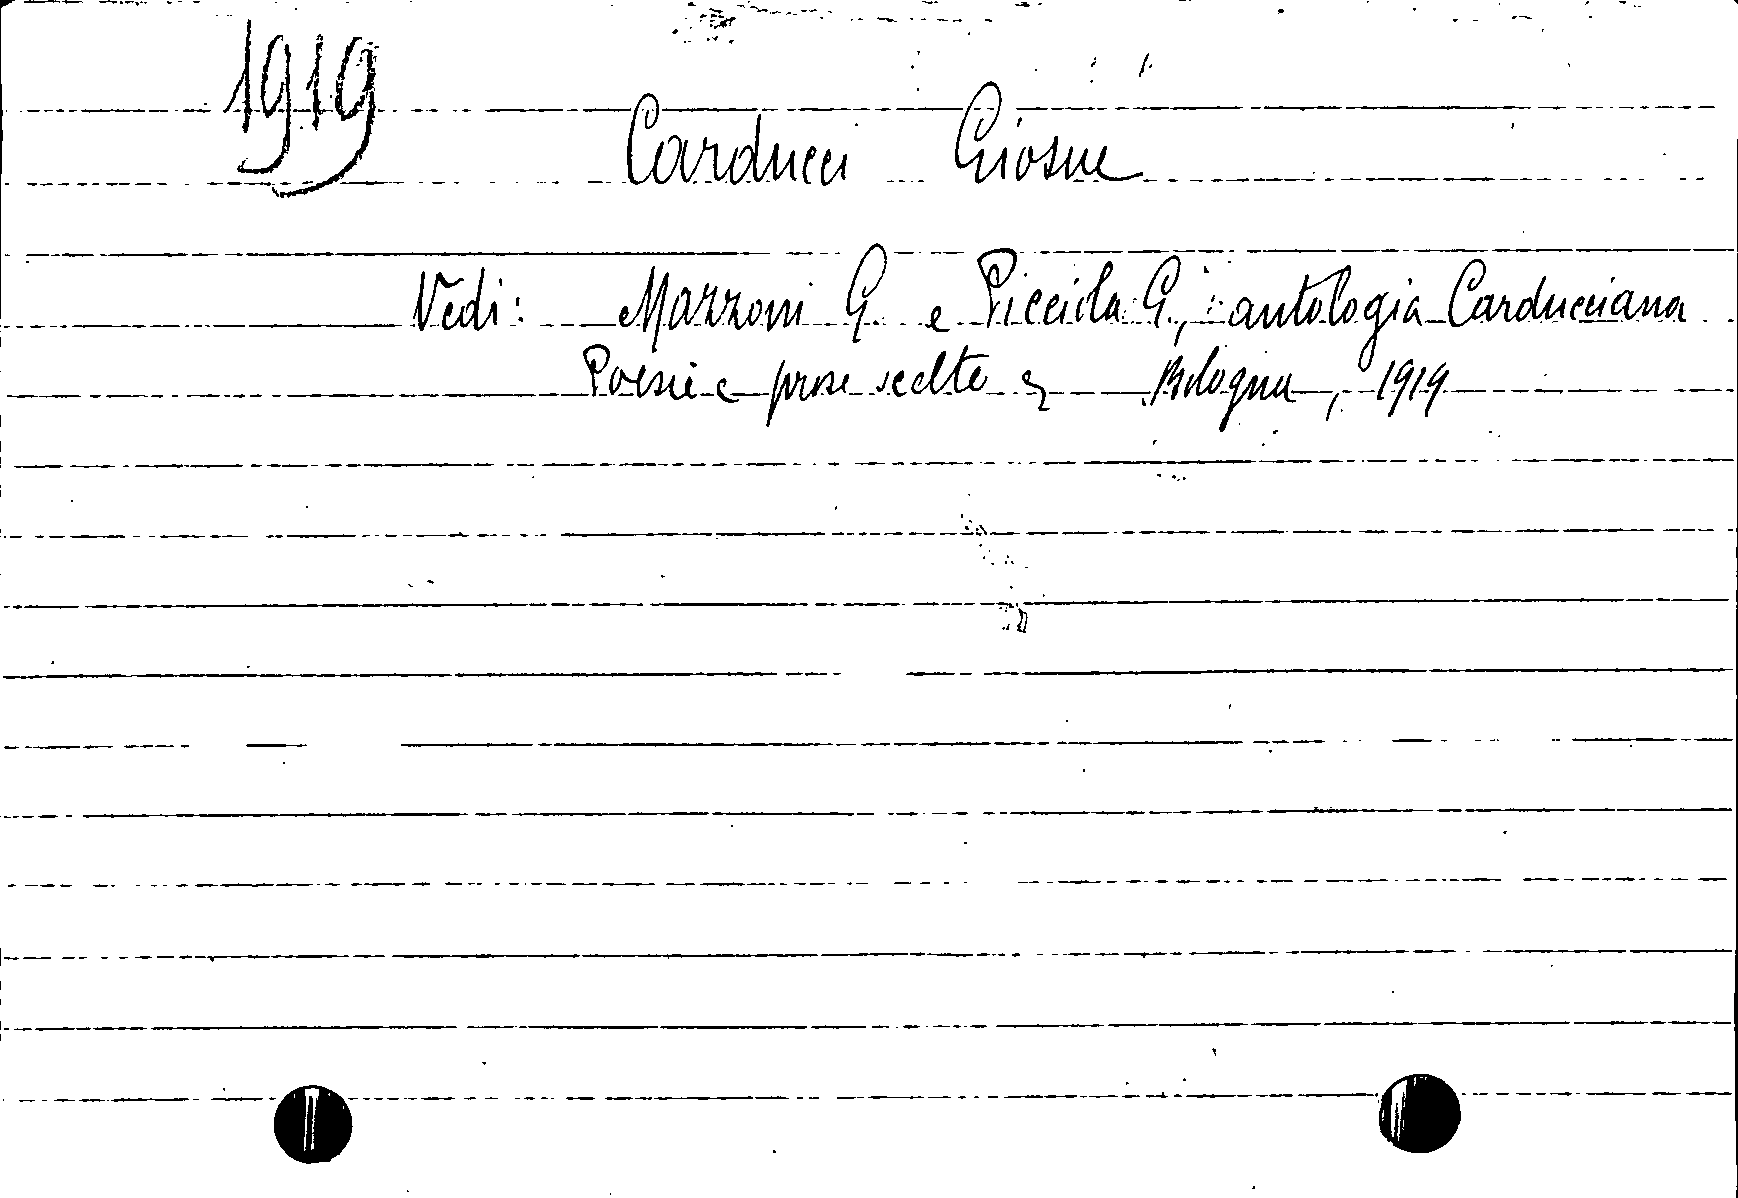 1919
Carducci Giosue
Vedi: Mazzoni G. e Picciola G., antologia Carducciana
Poesie e prose scelte Bologna, 1919